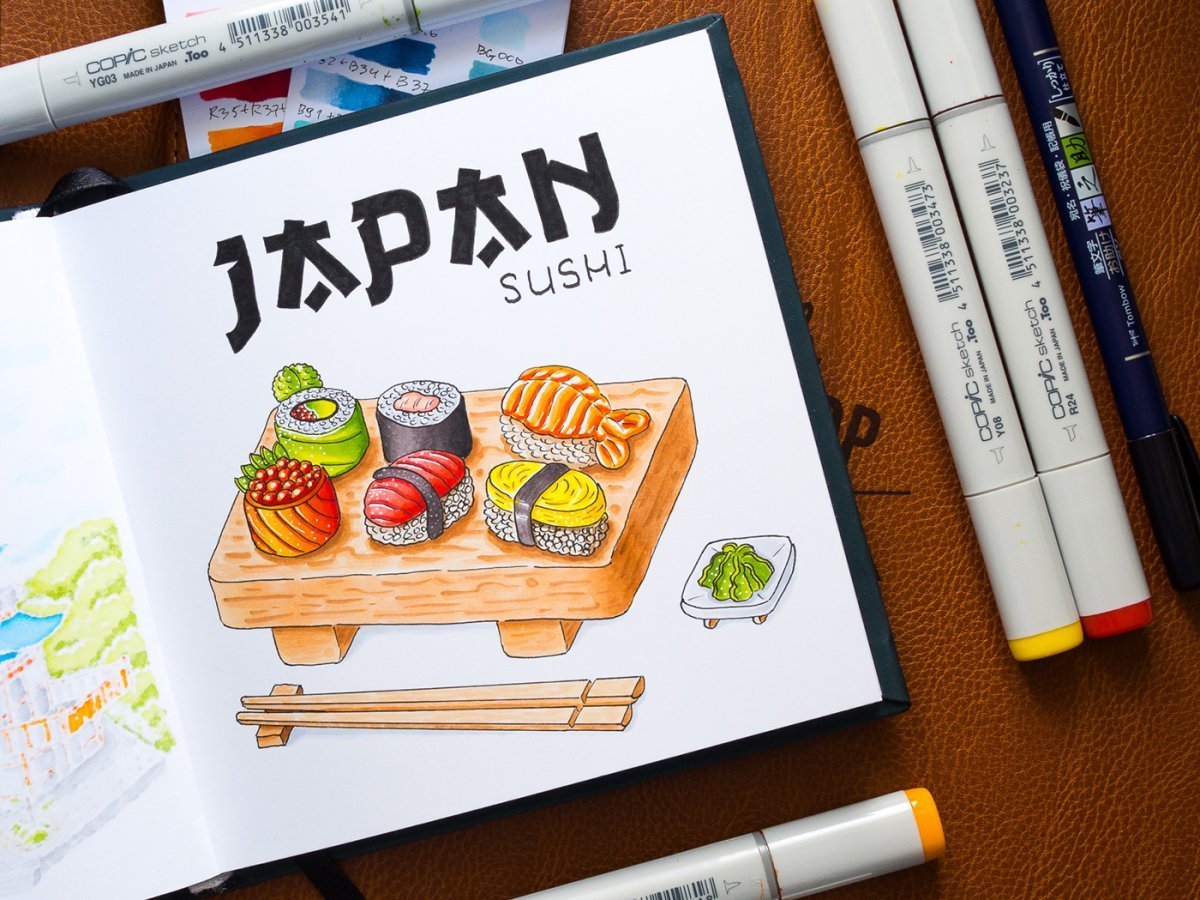 COPIC sketch
.Too
YG03 MADE IN JAPAN
4 511338 003541
R35+R37+
BG000
JAPAN
SUSHI
4 511338 003473
COPIC sketch
MADE IN JAPAN .Too
Y08
4 511338 003237
COPIC sketch
MADE IN JAPAN .Too
R24
宛名・祝儀袋・記帳用
しっかり
仕立て
筆文字
お助け
筆之助
Tombow